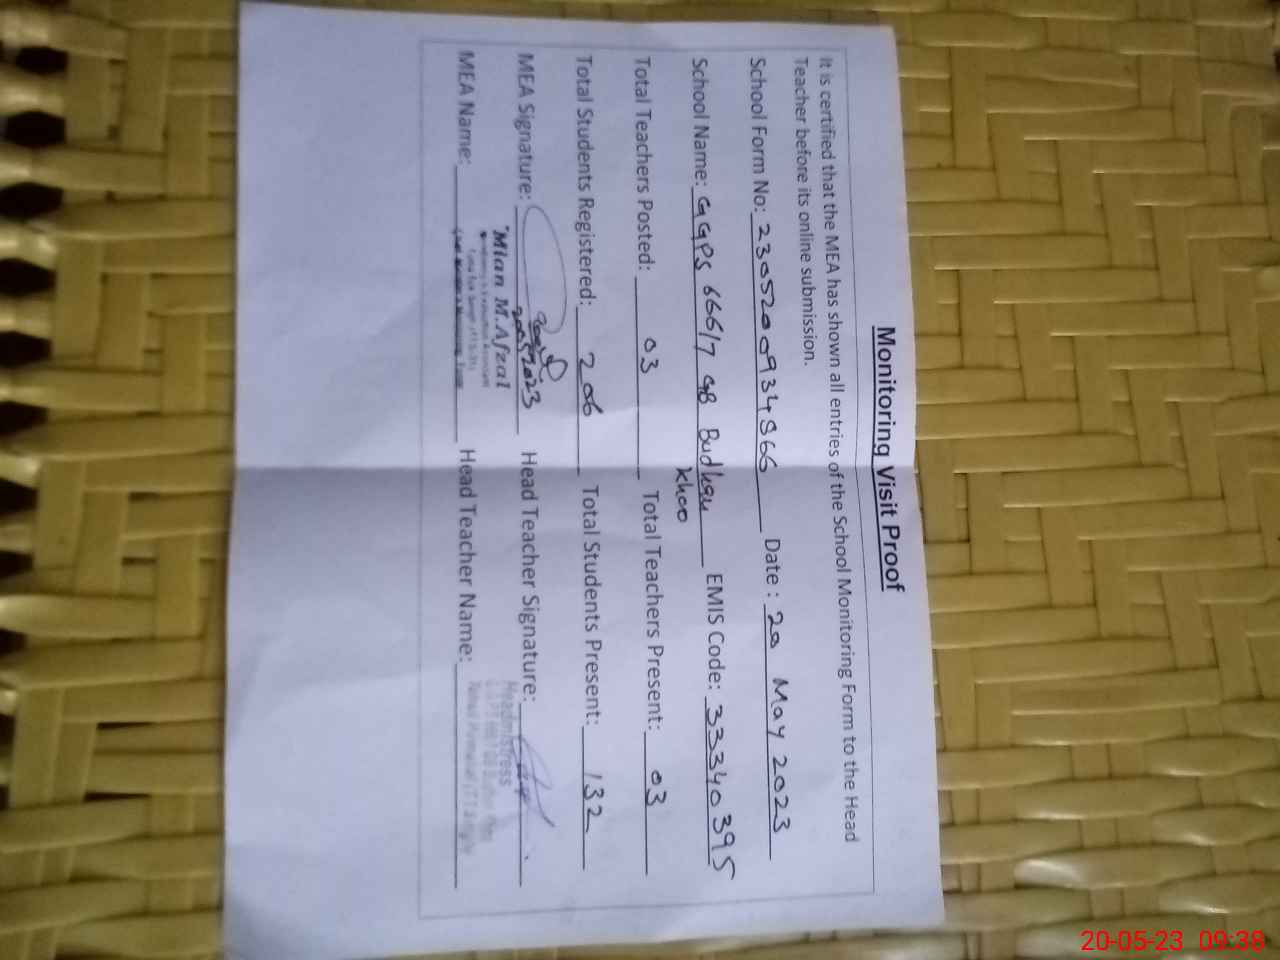 Monitoring Visit Proof
It is certified that the MEA has shown all entries of the School Monitoring Form to the Head
Teacher before its online submission.
School Form No: 2305200934866 Date : 20 May 2023
School Name: GGPS 666/7 GB Budhau EMIS Code: 33340395
Khoo
Total Teachers Posted: 03 Total Teachers Present: 03
Total Students Registered: 206 Total Students Present: 132
MEA Signature: 20052023 Head Teacher Signature:
Mian M.Afzal Headmistress
MEA Name: Head Teacher Name:
20-05-23 09:38